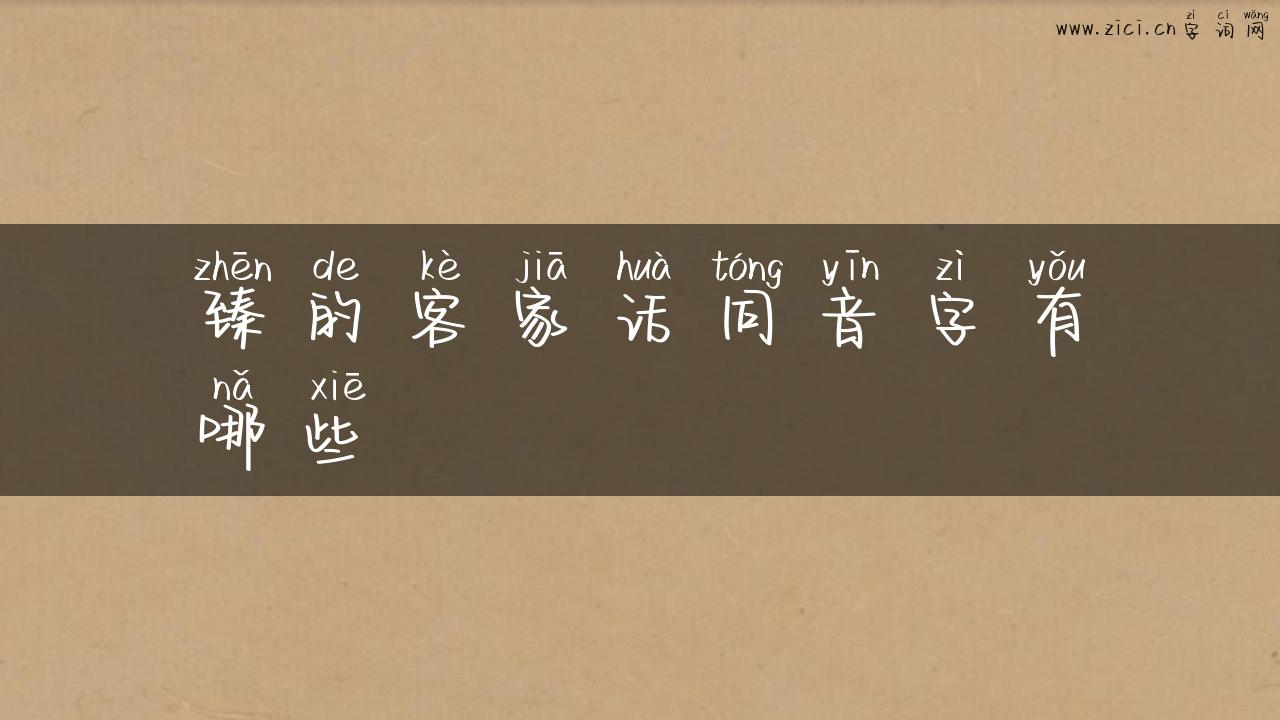 zì cí wǎng
www.zici.cn 字词网
zhēn de kè jiā huà tóng yīn zì yǒu
臻的客家话同音字有
nǎ xiē
哪些